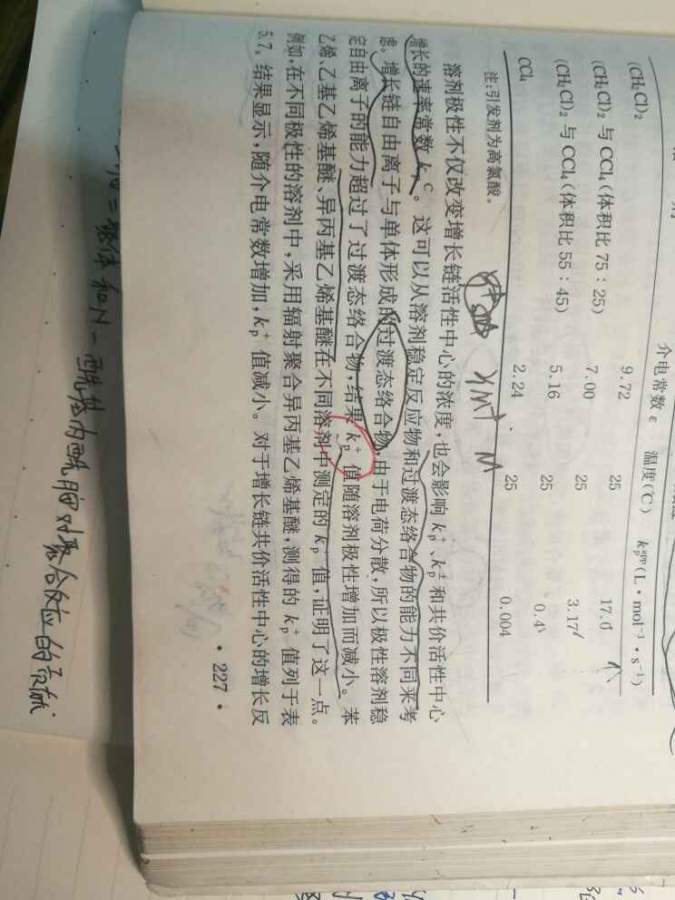 溶剂
介电常数 ε 温度(℃) k_p^app(L·mol⁻¹·s⁻¹)
(CH₂Cl)₂ 9.72 25 17.0
(CH₂Cl)₂ 与 CCl₄ (体积比 75 : 25) 7.00 25 3.17
(CH₂Cl)₂ 与 CCl₄ (体积比 55 : 45) 5.16 25 0.4
CCl₄ 2.24 25 0.004
注:引发剂为高氯酸。
溶剂极性不仅改变增长链活性中心的浓度,也会影响 k_p^+、k_p^± 和共价活性中心
增长的速率常数 k_p^C。这可以从溶剂稳定反应物和过渡态络合物的能力不同来考
虑。增长链自由离子与单体形成的过渡态络合物,由于电荷分散,所以极性溶剂稳
定自由离子的能力超过了过渡态络合物,结果 k_p^+ 值随溶剂极性增加而减小。苯
乙烯、乙基乙烯基醚、异丙基乙烯基醚在不同溶剂中测定的 k_p^+ 值,证明了这一点。
例如,在不同极性的溶剂中,采用辐射聚合异丙基乙烯基醚,测得的 k_p^+ 值列于表
5.7。结果显示,随介电常数增加,k_p^+ 值减小。对于增长链共价活性中心的增长反
· 227 ·
和N-酰基内酰胺对聚合反应的贡献